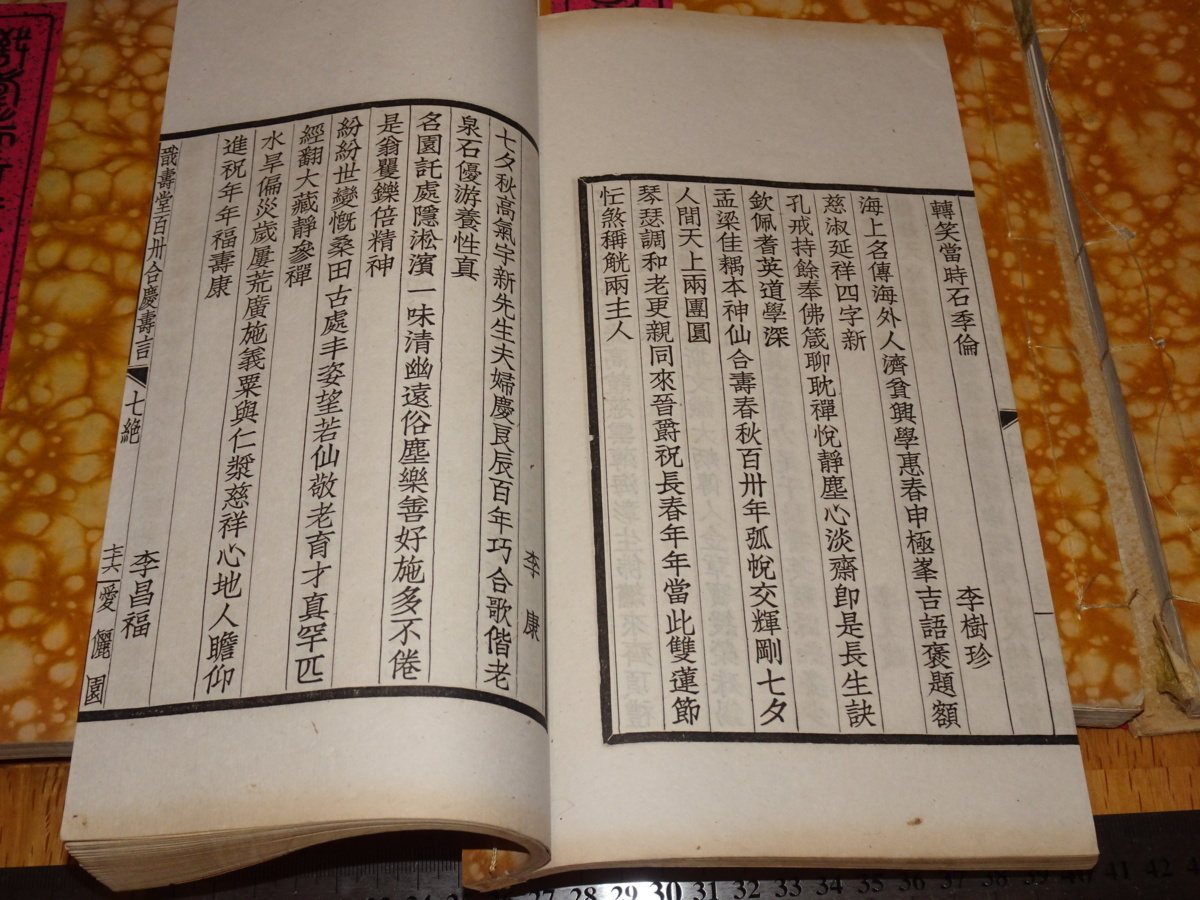 轉笑當時石季倫
李樹珍
海上名傳海外人濟貧興學惠春申極峯吉語褒題額
慈淑延祥四字新
孔戒持餘奉佛箴聊耽禪悅靜塵心淡齋即是長生訣
欽佩耆英道學深
孟梁佳耦本神仙合壽春秋百卅年弧帨交輝剛七夕
人間天上兩團圓
琴瑟調和老更親同來晉爵祝長春年年當此雙蓮節
忹煞稱觥兩主人
李康
七夕秋高氣宇新先生夫婦慶良辰百年巧合歌偕老
泉石優游養性真
名園託處隱淞濱一味清幽遠俗塵樂善好施多不倦
是翁矍鑠倍精神
紛紛世變慨桑田古處丰姿望若仙敬老育才真罕匹
經翻大藏靜參禪
水旱偏災歲屢荒廣施義粟與仁漿慈祥心地人瞻仰
進祝年年福壽康
李昌福
戩壽堂百卅合慶壽言
七絕
愛儷園
27 28 29 30 31 32 33 34 35 36 37 38 39 40 41 42